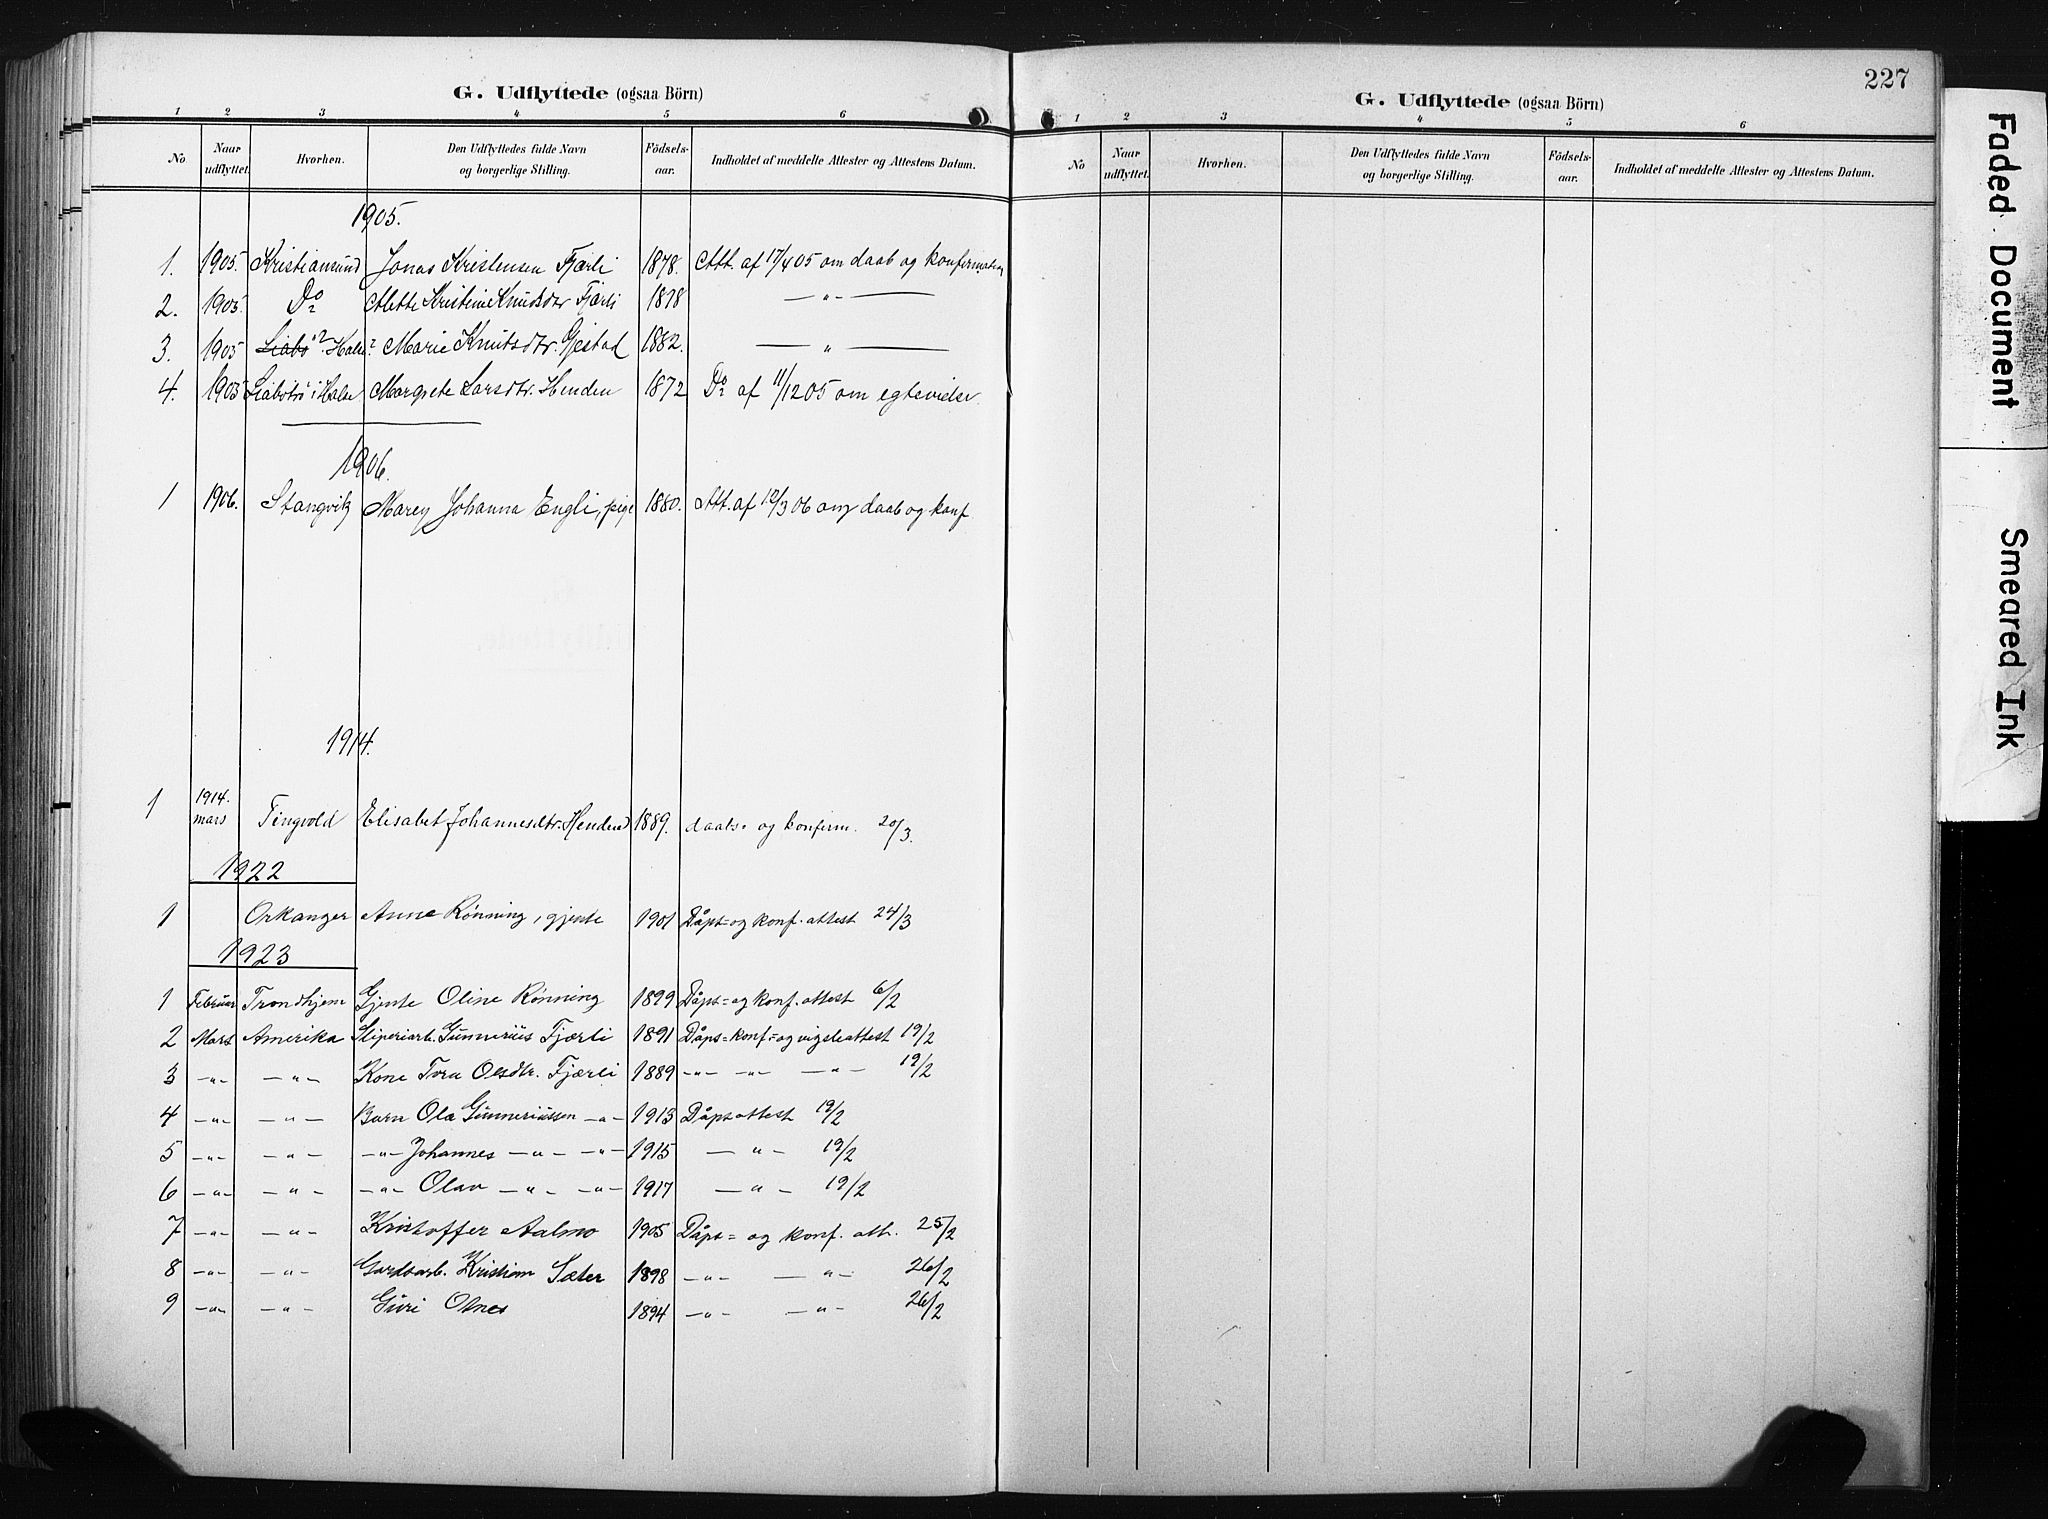 G. Udflyttede (ogsaa Börn)
1 2 3 4 5 6
No Naar udflyttet. Hvorhen. Den Udflyttedes fulde Navn og borgerlige Stilling. Födsels-aar. Indholdet af meddelte Attester og Attestens Datum.
1905.
1. 1905. Kristiansund Jonas Kristensen Fjærli 1878. Att. af 17/4 05 om daab og konfirmation
2. 1905. Do Mette Kristine Knudsdtr Fjærli 1878 — " —
3. 1905 Liabö? Halse? Marie Knutsdtr. Gjestad 1882. — " —
4. 1905 Liabötrö i Halse Margrete Larsdtr. Henden 1872 Do af 11/12 05 om egtevielse.
1906.
1 1906. Stangvik Marey Johanna Engli, pige 1880. Att. af 12/3 06 om daab og konf
1914.
1 1914. mars Tingvold Elisabet Johannesdtr. Henden 1889. daabs- og konfirm. 20/3.
1922
1 Orkanger Anne Rönning, gjente 1901 Dåps= og konf. attest 24/3
1923
1 Februar Trondhjem Gjente Oline Rönning 1899 Dåps= og konf. attest 6/2
2 Mars Amerika Sliperiarb. Gunnerius Fjærli 1891 Dåps= konf= og vigsleattest 19/2
3 -"- -"- Kone Tora Olsdtr. Fjærli 1889 -"- -"- -"- 19/2
4 -"- -"- Barn Ola Gunneriussen -"- 1913 Dåpsattest 19/2
5 -"- -"- -"- Johannes -"- -"- 1915 -"- 19/2
6 -"- -"- -"- Olav -"- -"- 1917 -"- 19/2
7 -"- -"- Kristoffer Aalmo 1905 Dåps= og konf. att. 25/2
8 -"- -"- Gardbarb. Kristian Sæter 1898 -"- -"- 26/2
9 -"- -"- Guri Olnes 1894 -"- -"- 26/2
227
G. Udflyttede (ogsaa Börn)
1 2 3 4 5 6
No Naar udflyttet. Hvorhen. Den Udflyttedes fulde Navn og borgerlige Stilling. Födsels-aar. Indholdet af meddelte Attester og Attestens Datum.
Faded Document
Smeared Ink